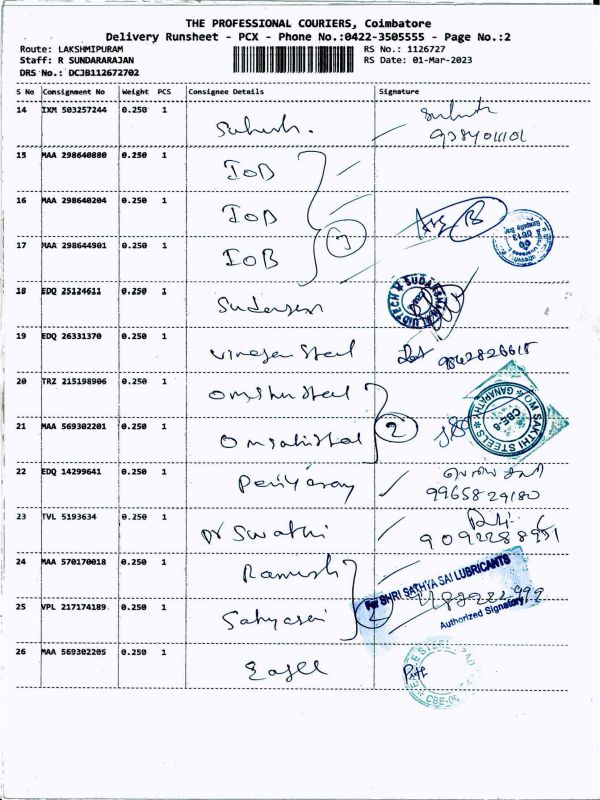 THE PROFESSIONAL COURIERS, Coimbatore
Delivery Runsheet - PCX - Phone No.:0422-3505555 - Page No.:2
Route: LAKSHMIPURAM RS No.: 1126727
Staff: R SUNDARARAJAN RS Date: 01-Mar-2023
DRS No.: DCJB112672702
S No Consignment No Weight PCS Consignee Details Signature
14 IXM 503257244 0.250 1
15 MAA 298640880 0.250 1 IOB
16 MAA 298640204 0.250 1 IOB
17 MAA 298644901 0.250 1 IOB
18 EDQ 25124611 0.250 1
19 EDQ 26331370 0.250 1 9842828618
20 TRZ 215198906 0.250 1
21 MAA 569302201 0.250 1 2 SAKTHI STEELS GANAPATHY CBE-6
22 EDQ 14299641 0.250 1 9965829180
23 TVL 5193634 0.250 1 Dr Swathi 9092288951
24 MAA 570170018 0.250 1 Ramesh For SHRI SATHYA SAI LUBRICANTS
25 VPL 217174189 0.250 1 Sahyasai 2 Authorized Signatory
26 MAA 569302205 0.250 1 Eagle